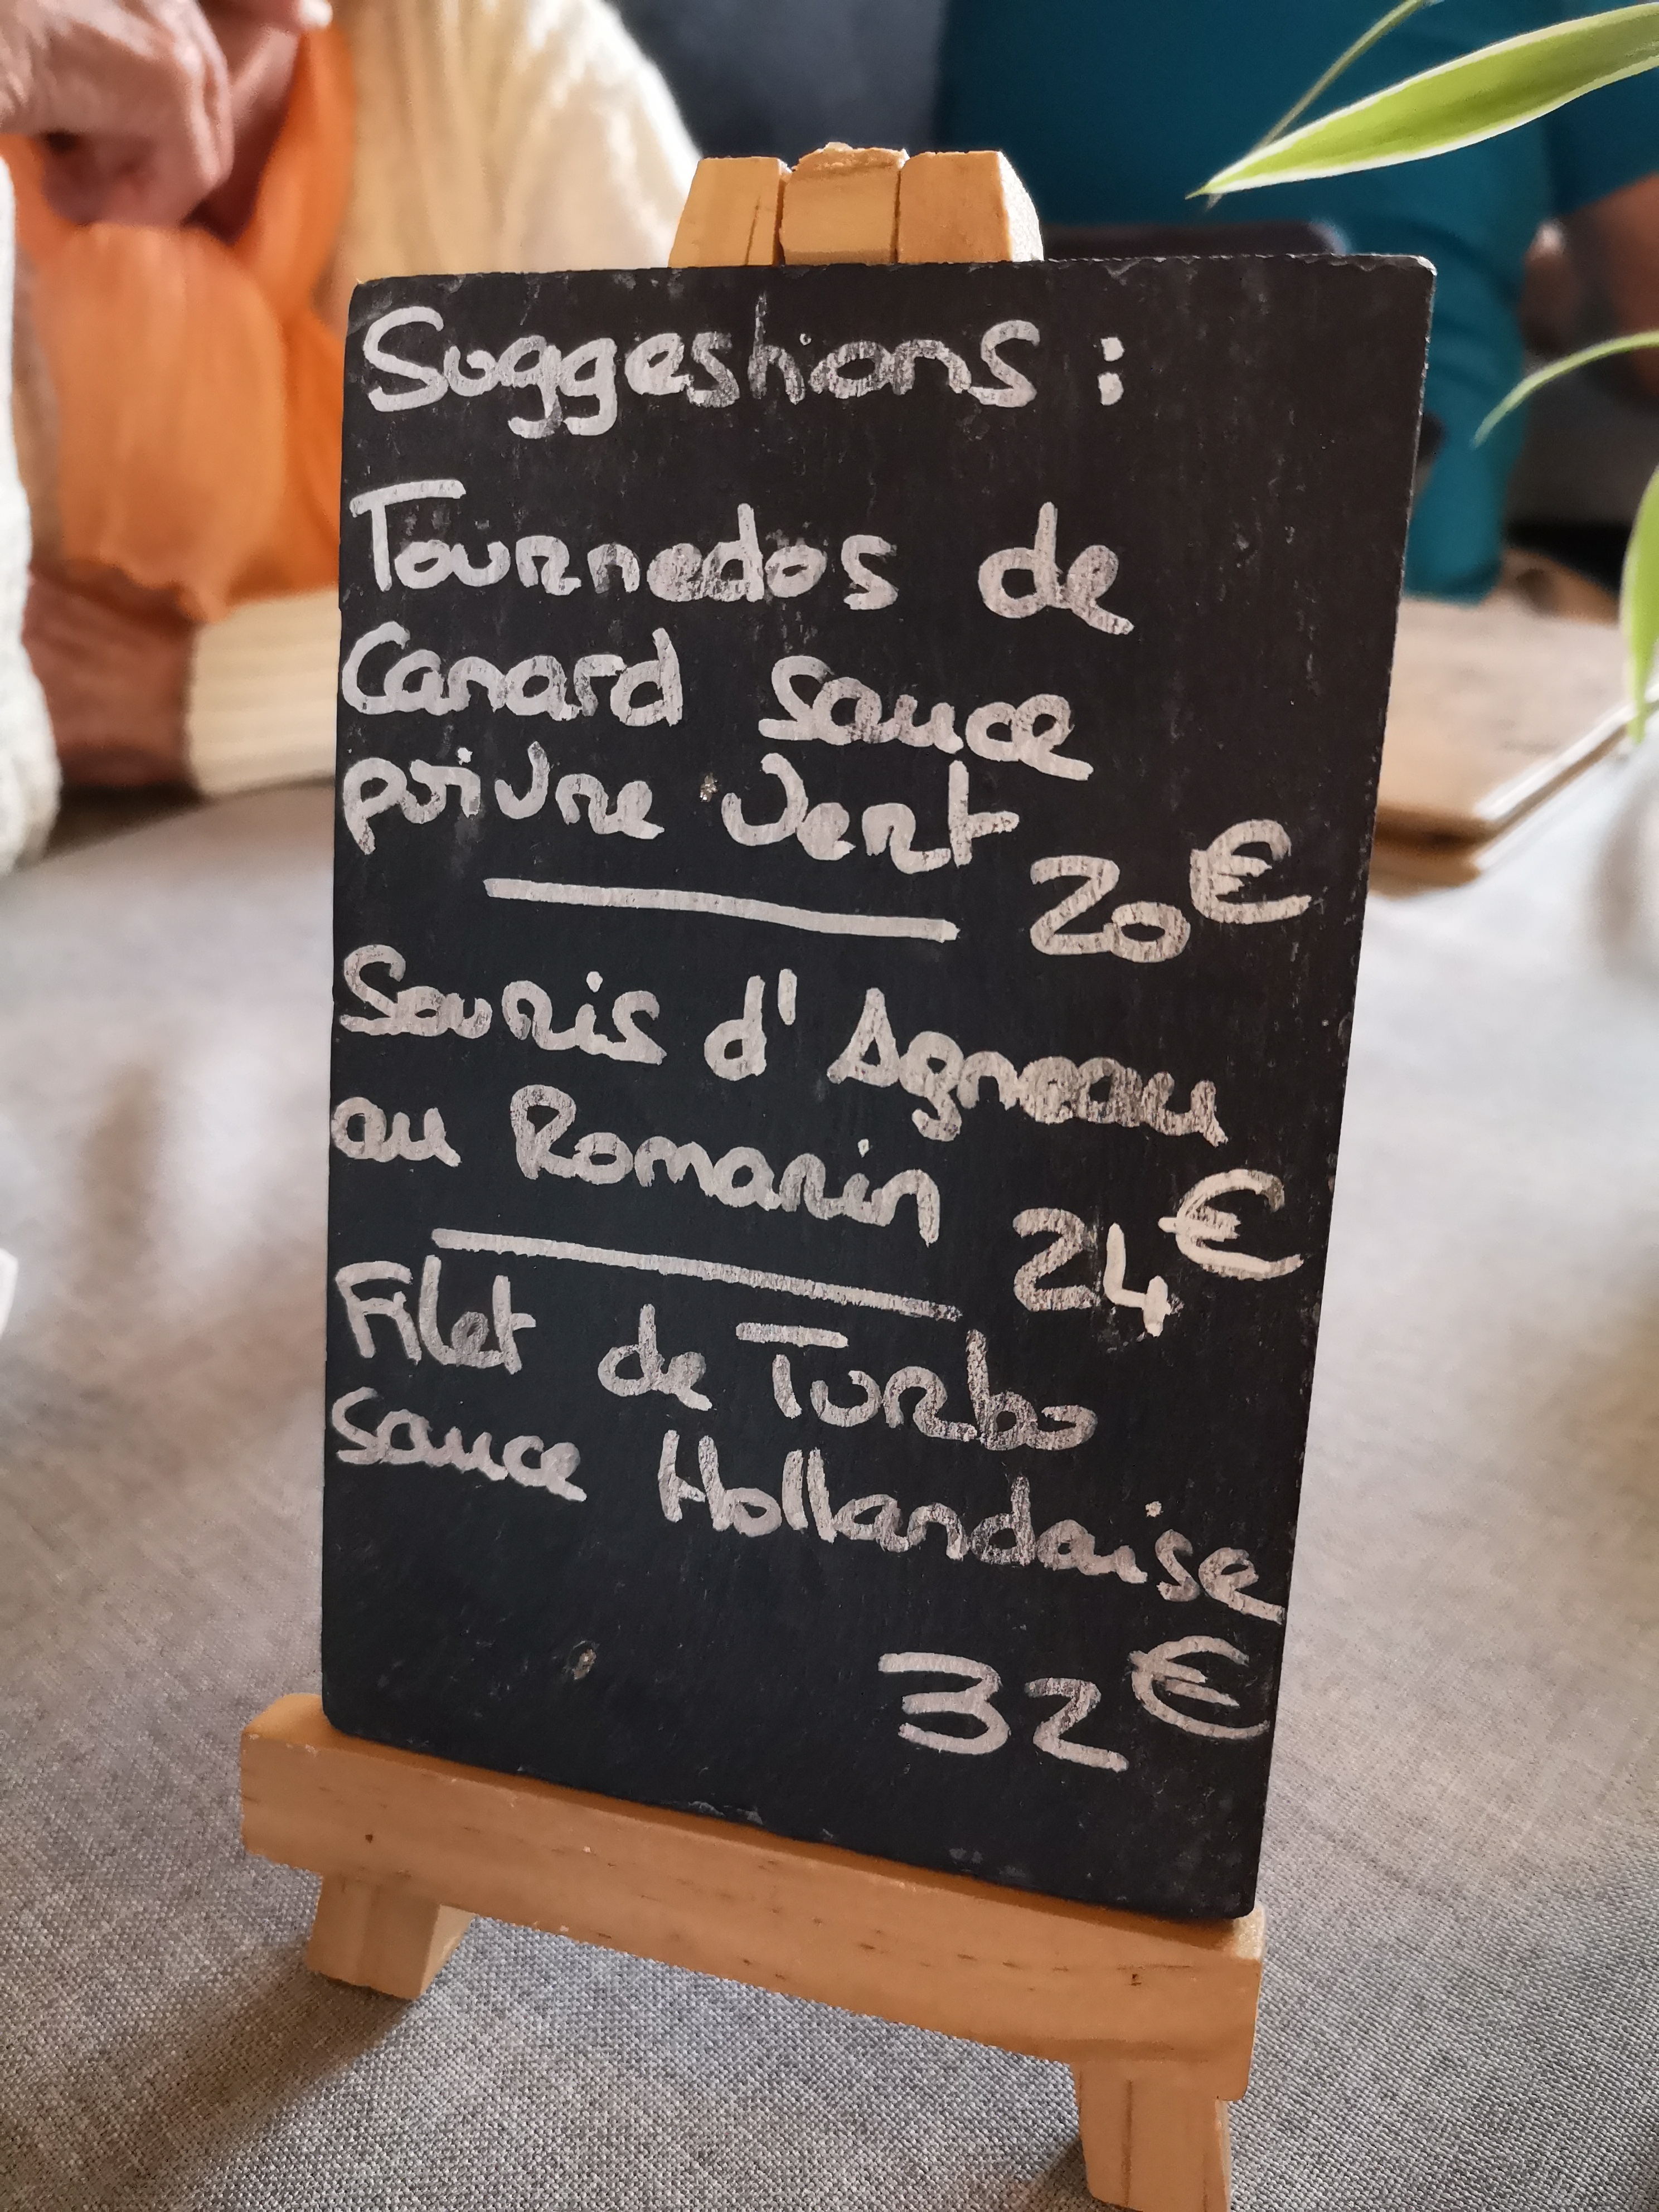 Suggestions :
Tournedos de
Canard sauce
poivre vert
20€
Souris d'Agneau
au Romarin
24€
Filet de Turbo
sauce Hollandaise
32€